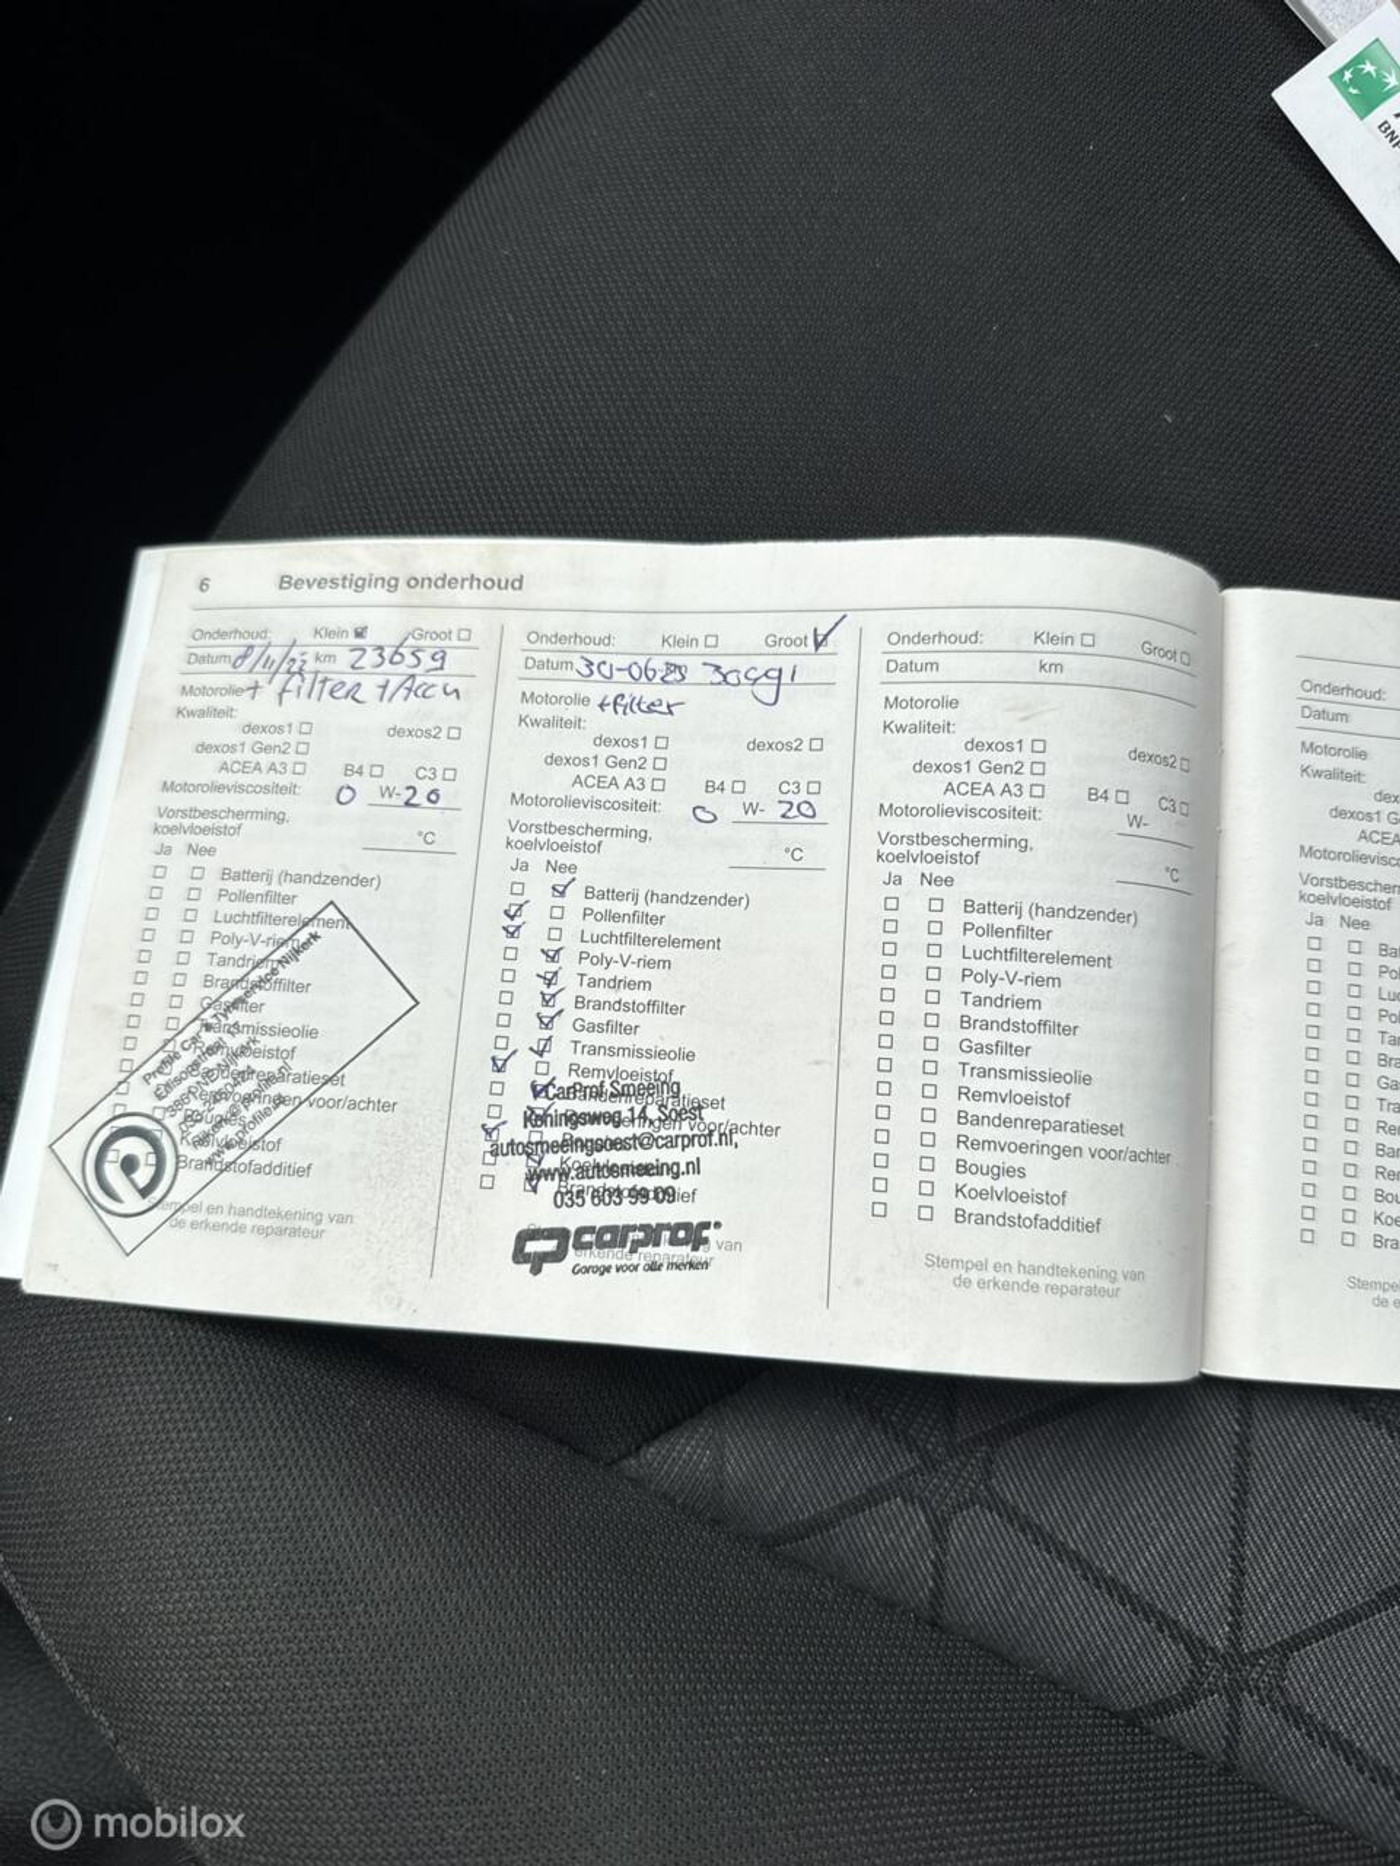 BNP
6 Bevestiging onderhoud
Onderhoud: Klein Groot
Datum 8/11/22 km 23659
Motorolie + filter + Accu
Kwaliteit:
dexos1 dexos2
dexos1 Gen2
ACEA A3 B4 C3
Motorolieviscositeit: 0 W-20
Vorstbescherming,
koelvloeistof °C
Ja Nee
Batterij (handzender)
Pollenfilter
Luchtfilterelement
Poly-V-riem
Tandriem
Brandstoffilter
Gasfilter
Transmissieolie
Remvloeistof
Bandenreparatieset
Remvoeringen voor/achter
Bougies
Koelvloeistof
Brandstofadditief
Stempel en handtekening van
de erkende reparateur
Profile Car & Tyreservice Nijkerk
Onderhoud: Klein Groot
Datum 30-06-23
Motorolie +filter
Kwaliteit:
dexos1 dexos2
dexos1 Gen2
ACEA A3 B4 C3
Motorolieviscositeit: 0 W- 20
Vorstbescherming,
koelvloeistof °C
Ja Nee
Batterij (handzender)
Pollenfilter
Luchtfilterelement
Poly-V-riem
Tandriem
Brandstoffilter
Gasfilter
Transmissieolie
Remvloeistof
CarProf Smeeing
Koningsweg 14, Soest
autosmeeingsoest@carprof.nl,
www.autosmeeing.nl
035 603 99 09
carprof
Garage voor alle merken
Onderhoud: Klein Groot
Datum km
Motorolie
Kwaliteit:
dexos1 dexos2
dexos1 Gen2
ACEA A3 B4 C3
Motorolieviscositeit: W-
Vorstbescherming,
koelvloeistof °C
Ja Nee
Batterij (handzender)
Pollenfilter
Luchtfilterelement
Poly-V-riem
Tandriem
Brandstoffilter
Gasfilter
Transmissieolie
Remvloeistof
Bandenreparatieset
Remvoeringen voor/achter
Bougies
Koelvloeistof
Brandstofadditief
Stempel en handtekening van
de erkende reparateur
Onderhoud:
Datum
Motorolie
Kwaliteit:
dex
dexos1 G
ACEA
Motorolievisc
Vorstbescher
koelvloeistof
Ja Nee
Bat
Pol
Luc
Pol
Tar
Bra
Ga
Tra
Re
Bar
Rer
Bou
Koe
Bra
Stempe
de e
mobilox